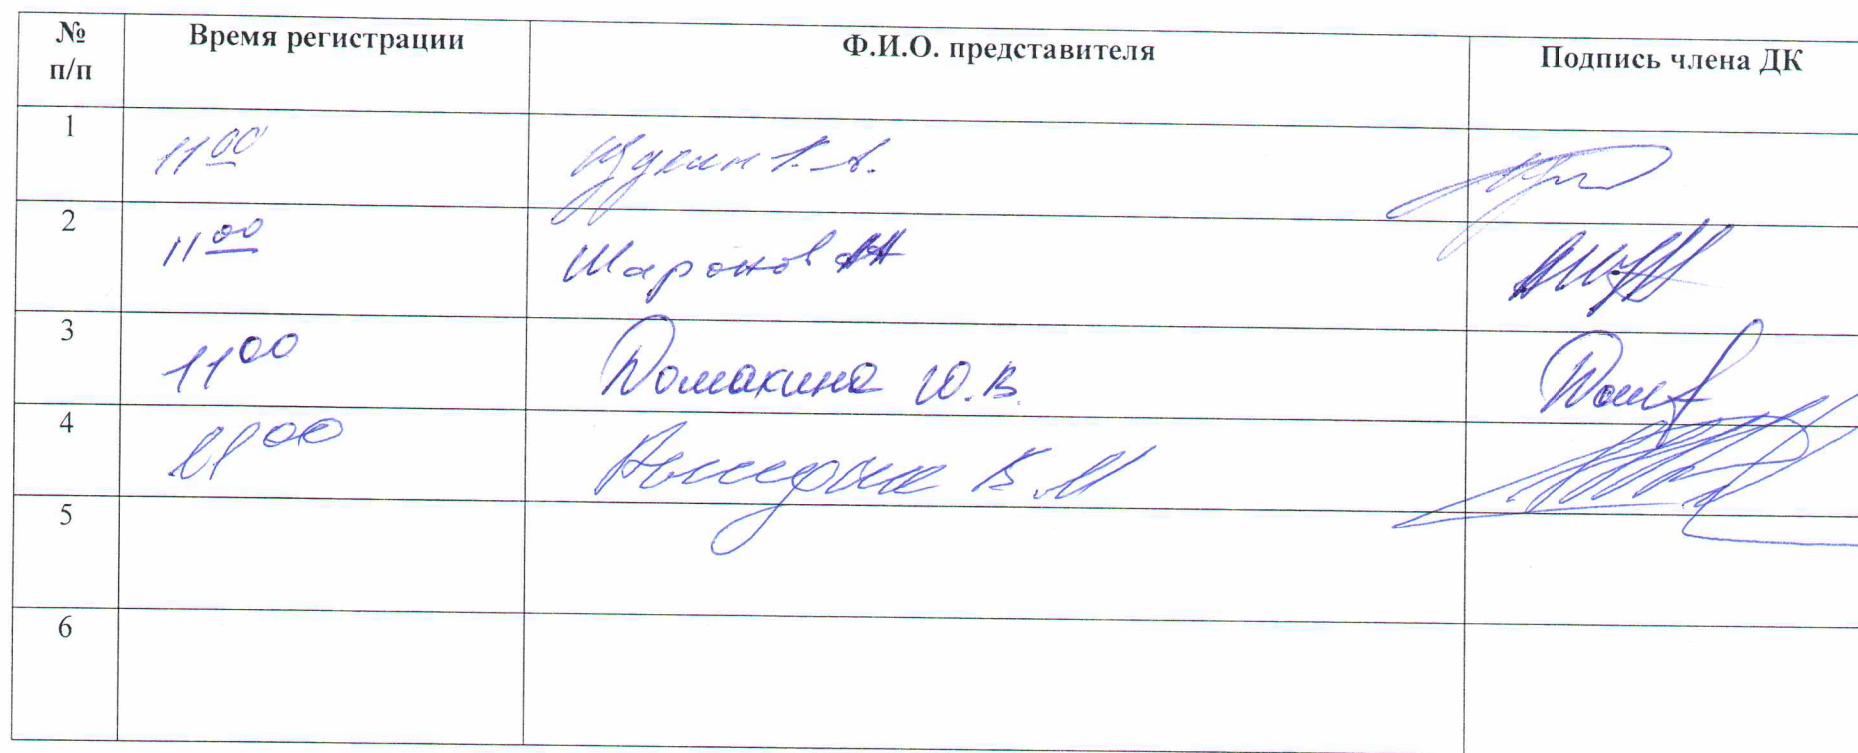 № п/п Время регистрации Ф.И.О. представителя Подпись члена ДК
1 11 00
2 11 00 Шаронов
3 11 00 Домакина Ю.В.
4 11 00 В.М
5
6